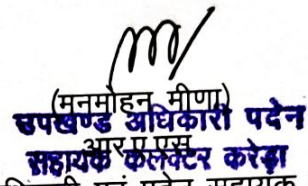 (मनमोहन मीणा)
उपखण्ड अधिकारी पदेन
आर.ए.एस.
सहायक कलेक्टर करेड़ा
एवं पदेन सहायक